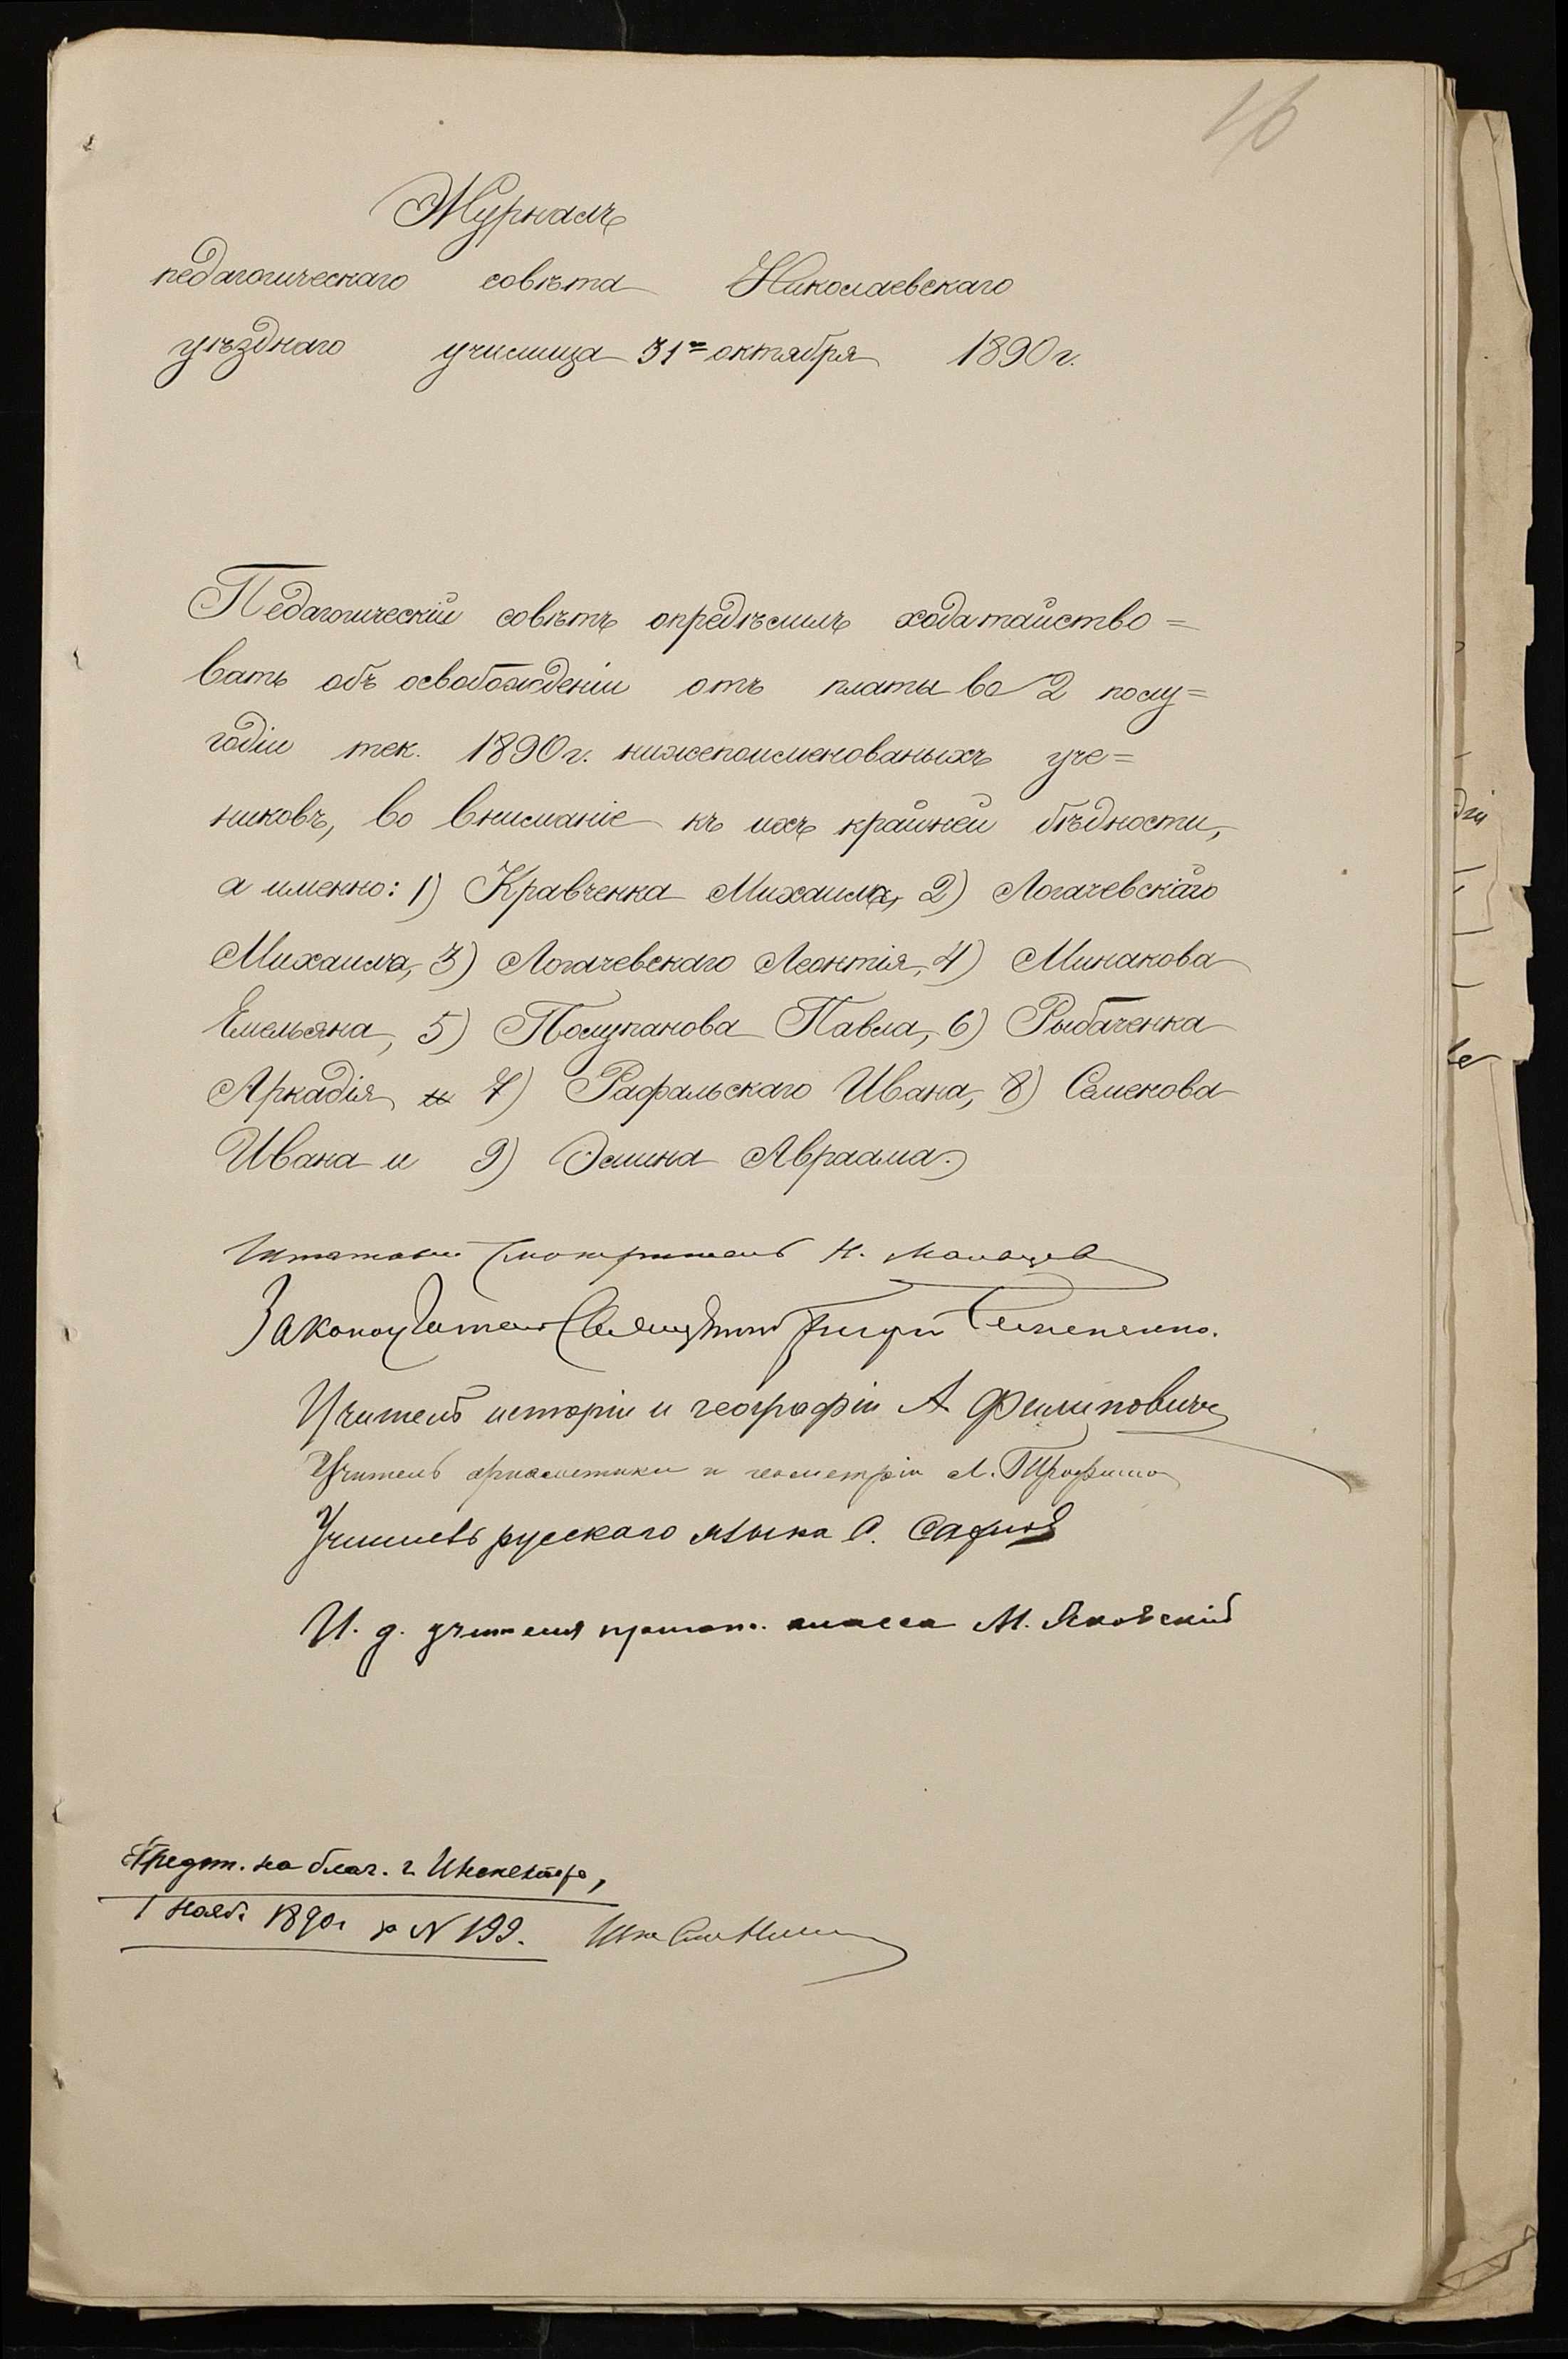 16
Журналъ
педагогическаго совѣта Николаевскаго
уѣзднаго училища 31го октября 1890 г.
Педагогическій совѣтъ опредѣлилъ ходатайство=
вать объ освобожденіи отъ платы во 2 полу=
годіи тек. 1890 г. нижепоименованыхъ уче=
никовъ, во вниманіе къ ихъ крайней бѣдности,
а именно: 1) Кравченка Михаила, 2) Логачевскаго
Михаила, 3) Логачевскаго Леонтія, 4) Минакова
Емельяна, 5) Полупанова Павла, 6) Рыбаченка
Аркадія, и 7) Рафальскаго Ивана, 8) Семенова
Ивана и 9) Элина Авраама.
Штатный Смотритель Н.
Законоучитель Священникъ
Учитель исторіи и географіи А. Филиповичъ
Учитель ариѳметики и геометріи
Учитель русскаго языка С.
И. д. учителя пригот. класса М. Яновскій
Предст. на благ. г. Инспектора,
1 Нояб. 1890 г. за N 199.